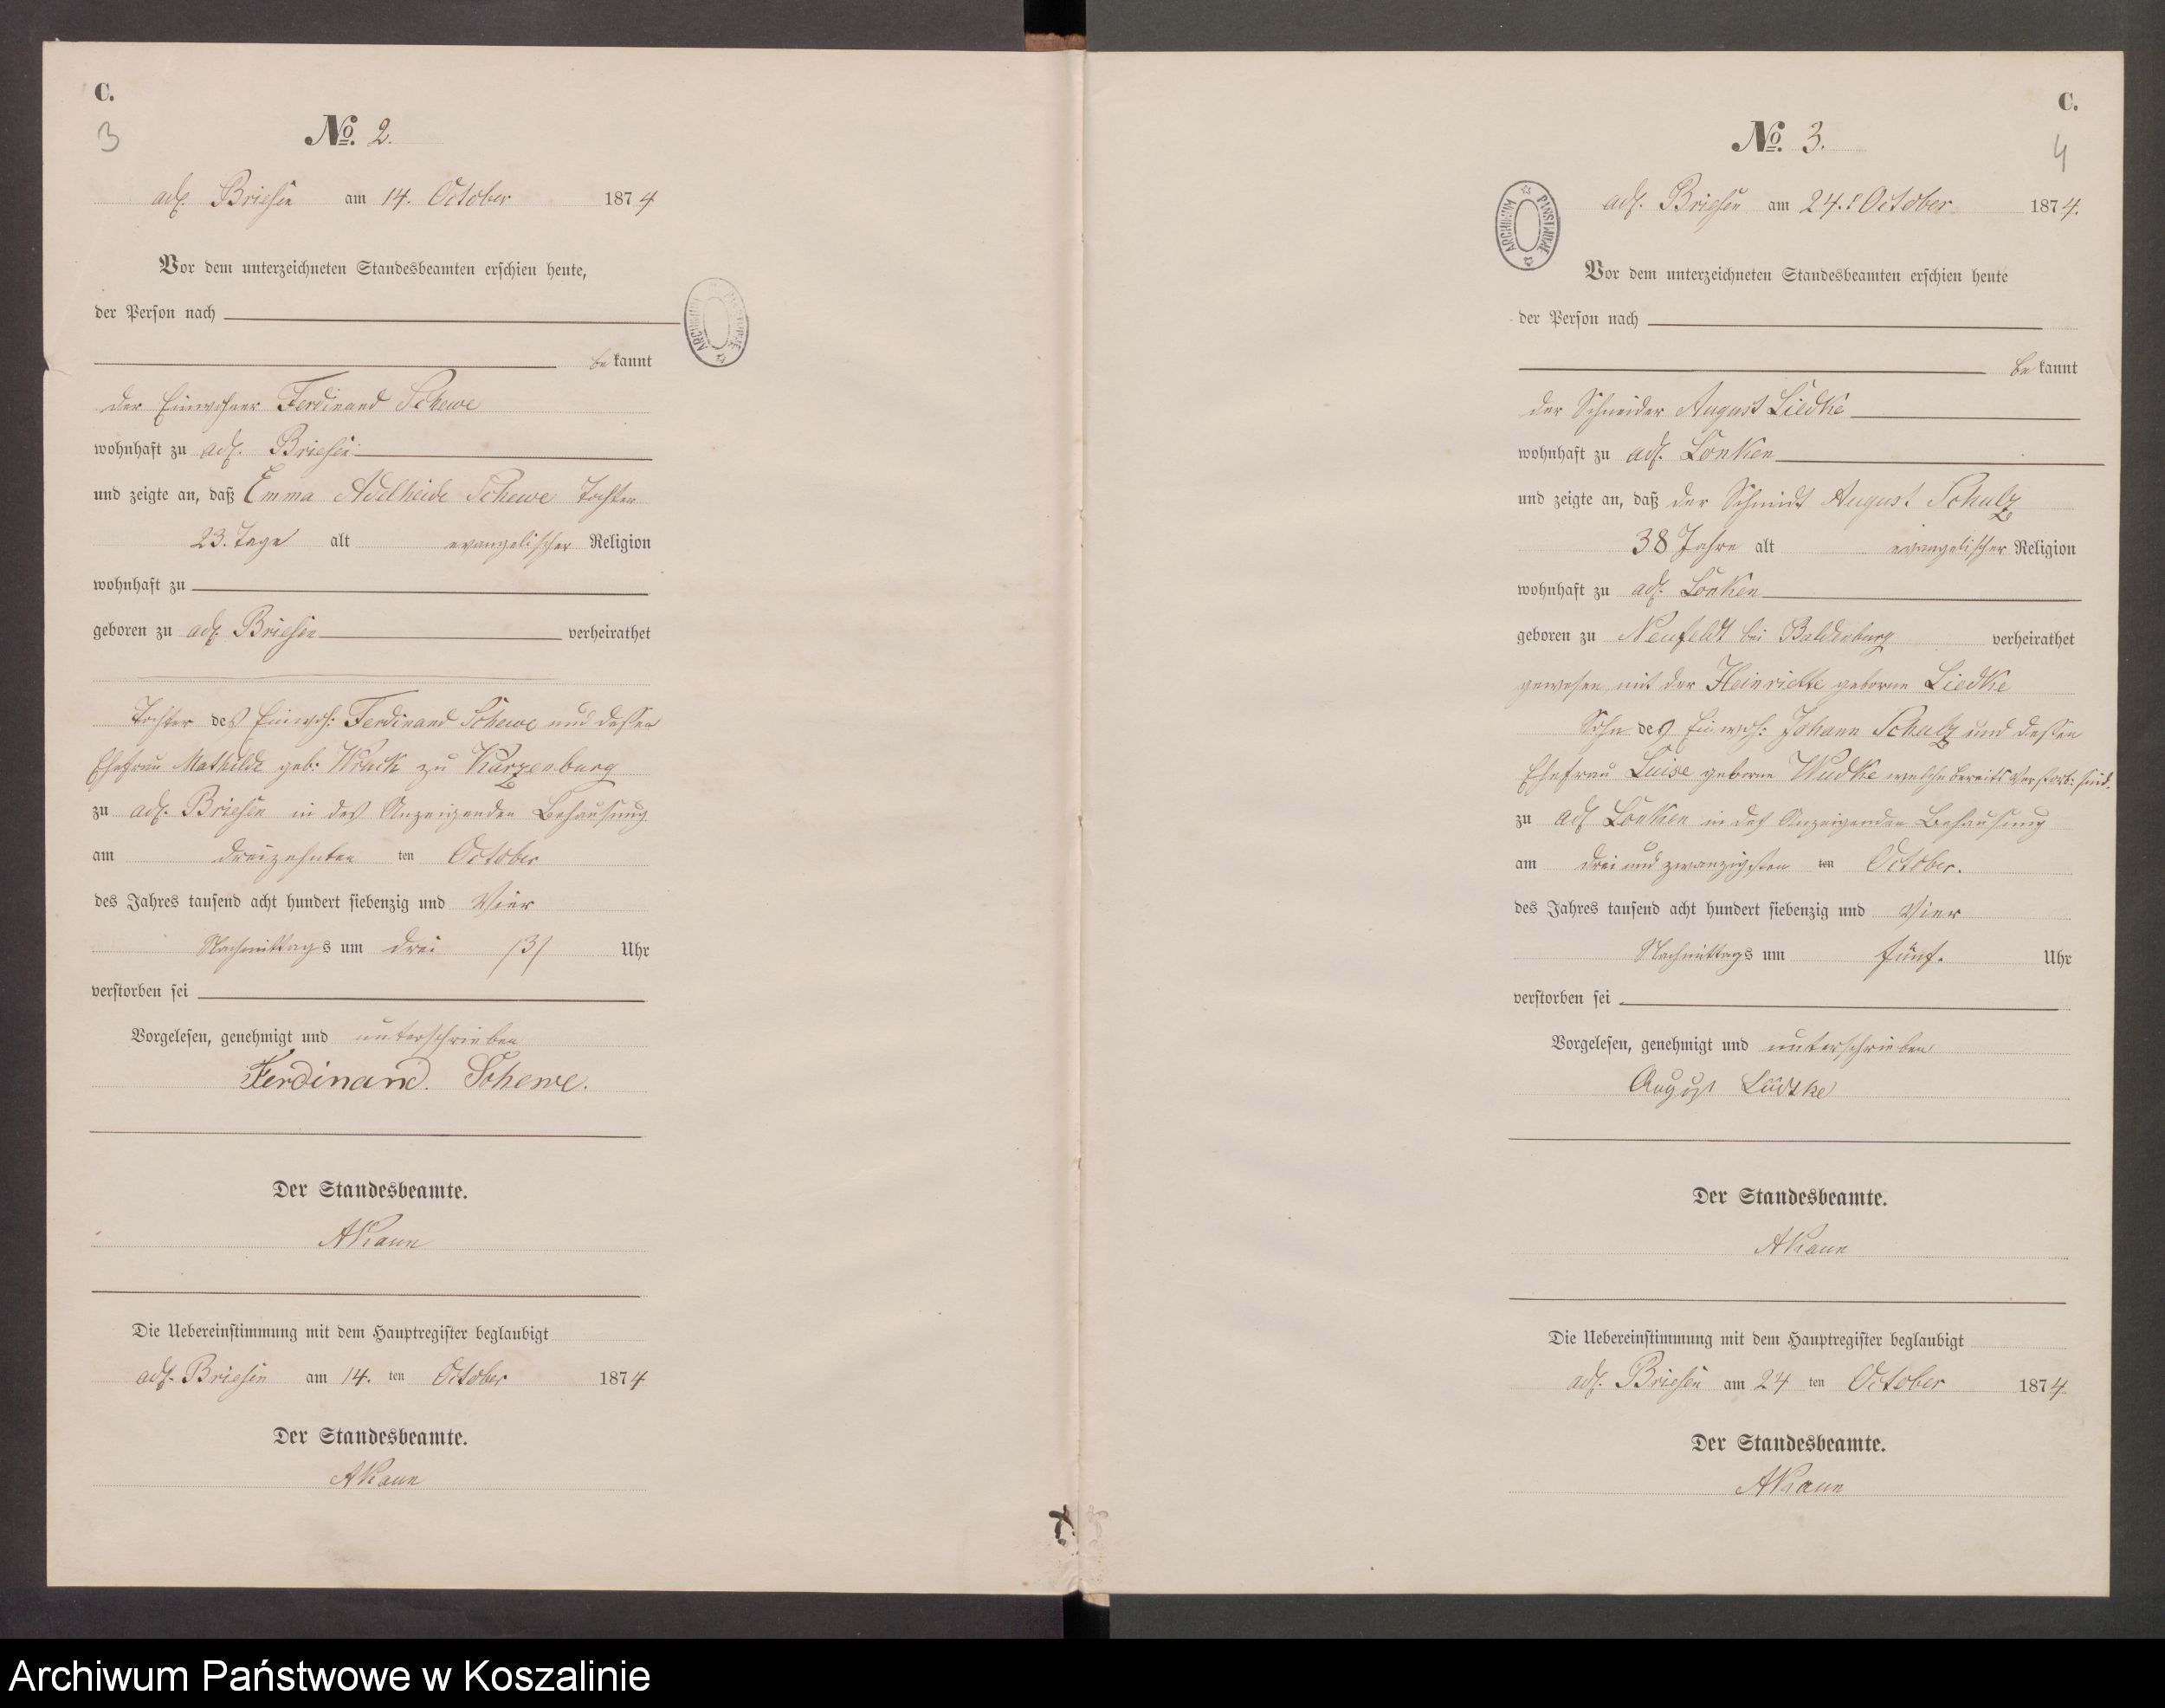 C.
3
No. 2.
adl. Briesen am 14. October 1874
Vor dem unterzeichneten Standesbeamten erschien heute,
der Person nach
bekannt
der Einwohner Ferdinand Schewe
wohnhaft zu adl. Briesen
und zeigte an, daß Emma Adelheide Schewe Tochter
23. Tage alt evangelischer Religion
wohnhaft zu
geboren zu adl. Briesen verheirathet
Tochter des Einwoh: Ferdinand Schewe und dessen
Ehefrau Mathilde geb: Wruck zu Karzenburg
zu adl. Briesen in des Anzeigenden Behausung
am dreizehnten ten October
des Jahres tausend acht hundert siebenzig und Vier
Nachmittags um drei /3/ Uhr
verstorben sei
Vorgelesen, genehmigt und unterschrieben
Ferdinand. Schewe.
Der Standesbeamte.
Die Uebereinstimmung mit dem Hauptregister beglaubigt
adl. Briesen am 14. ten October 1874
Der Standesbeamte.
ARCHIWUM PAŃSTWOWE
C.
4
No. 3.
adl. Briesen am 24. October 1874.
Vor dem unterzeichneten Standesbeamten erschien heute
der Person nach
bekannt
der Schneider August Liedke
wohnhaft zu adl. Lonken
und zeigte an, daß der Schmidt August Schulz
38 Jahre alt evangelischer Religion
wohnhaft zu adl. Lonken
geboren zu Neufeldt bei Baldenburg verheirathet
gewesen mit der Heinriette geborne Liedke
Sohn des Einwoh: Johann Schulz und dessen
Ehefrau Luise geborne Wudke welche bereits verstorb: sind.
zu adl Lonken in des Anzeigenden Behausung
am drei und zwanzigsten ten October.
des Jahres tausend acht hundert siebenzig und Vier
Nachmittags um fünf. Uhr
verstorben sei
Vorgelesen, genehmigt und unterschrieben
August Lüdtke
Der Standesbeamte.
Die Uebereinstimmung mit dem Hauptregister beglaubigt
adl. Briesen am 24 ten October 1874
Der Standesbeamte.
ARCHIWUM PAŃSTWOWE
Archiwum Państwowe w Koszalinie